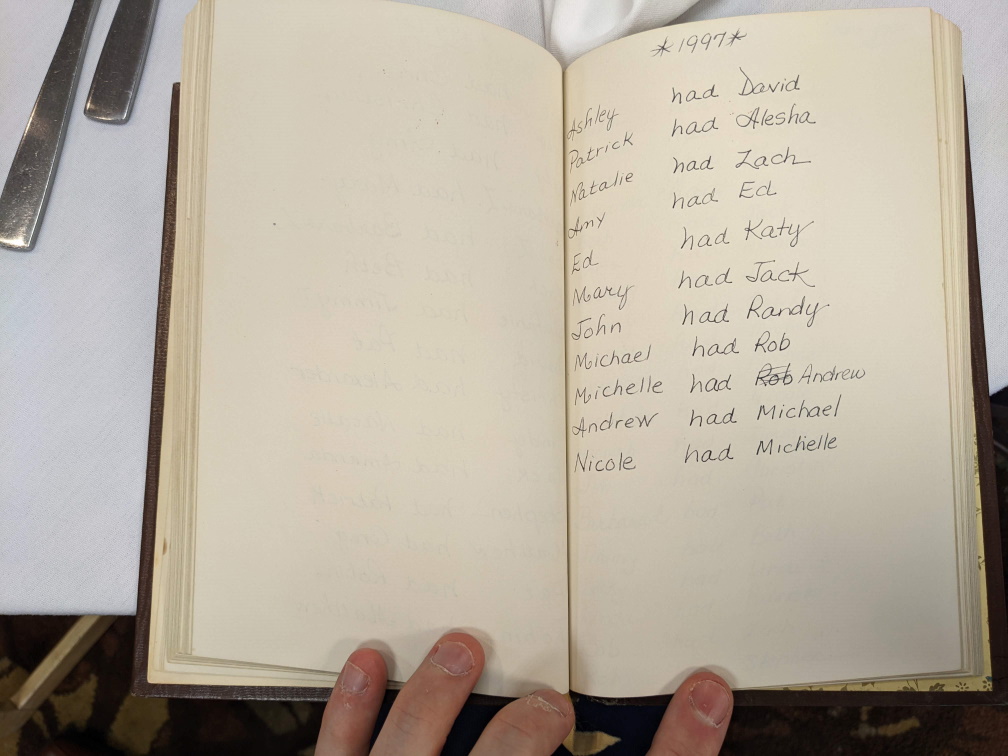 *1997*
Ashley had David
Patrick had Alesha
Natalie had Zach
Amy had Ed
Ed had Katy
Mary had Jack
John had Randy
Michael had Rob
Michelle had Rob Andrew
Andrew had Michael
Nicole had Michelle